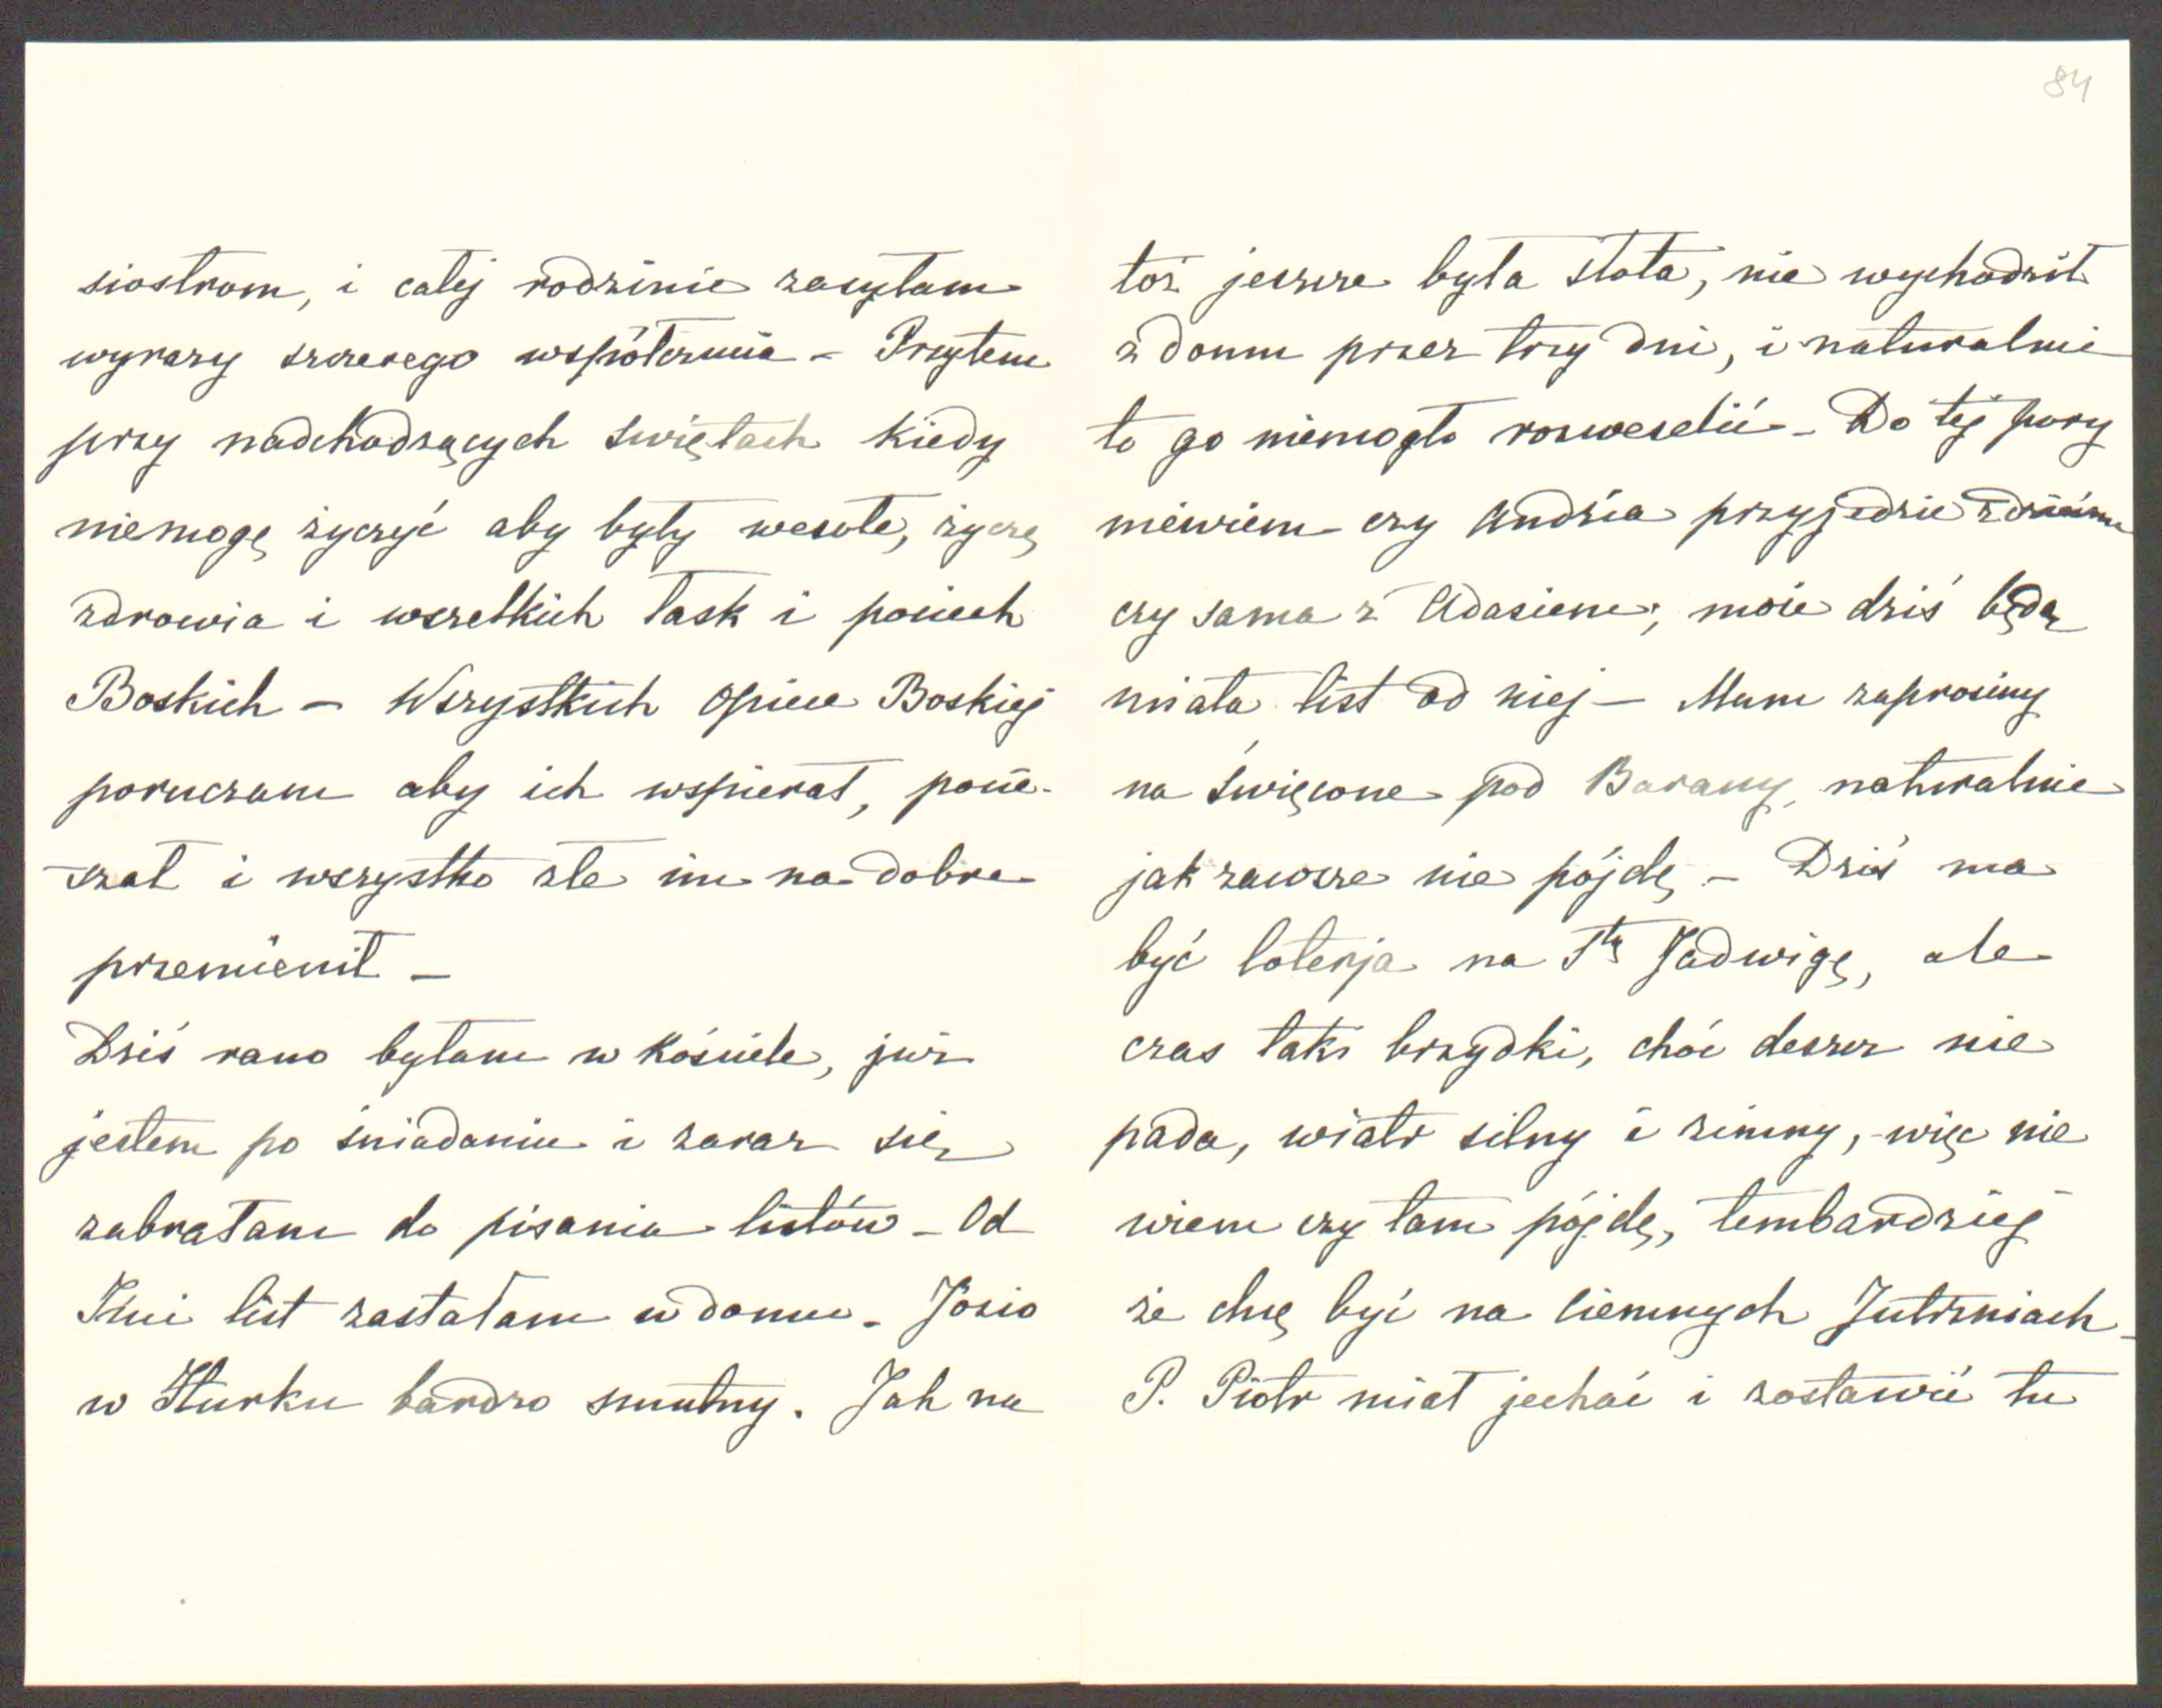 84
siostrom, i całej rodzinie zasyłam
wyrazy szczerego współczucia – Przytem
przy nadchodzących świętach kiedy
niemogę życzyć aby były wesołe, życzę
zdrowia i wszelkich łask i pociech
Boskich – Wszystkich Opiece Boskiej
poruczam aby ich wspierał, pocie-
-szał i wszystko złe im na dobre
przemienił –
Dziś rano byłam w kościele, już
jestem po śniadaniu i zaraz się
zabrałam do pisania listów – Od
list zastałam w domu – Jozio
w Hurku bardzo smutny. Jak na
toż jeszcze była słota, nie wychodził
z domu przez trzy dni, i naturalnie
to go niemogło rozweselić – Do tej pory
niewiem czy Andzia przyjedzie z dziećmi
czy sama z Adasiem; może dziś będę
miała list od niej – Mam zaprosiny
na święcone pod Barany, naturalnie
jak zawsze nie pójdę – Dziś ma
być loterja na Stą Jadwigę, ale
czas taki brzydki, choć deszcz nie
pada, wiatr silny i zimny, – więc nie
wiem czy tam pójdę, tembardziej
że chcę być na Ciemnych Jutrzniach –
P. Piotr miał jechać i zostawić tu